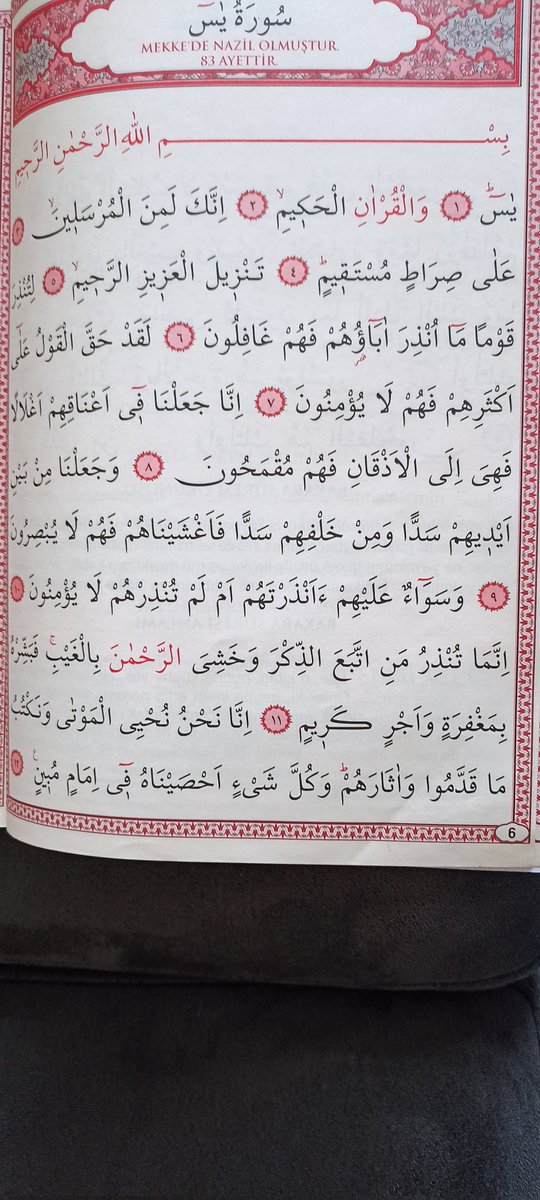 سُورَةُ يٰسٓ
MEKKE'DE NAZİL OLMUŞTUR.
83 AYETTİR.
بِسْمِ اللّٰهِ الرَّحْمٰنِ الرَّحٖيمِ
يٰسٓ ۚ ﴿١﴾ وَالْقُرْاٰنِ الْحَكٖيمِ ۙ ﴿٢﴾ اِنَّكَ لَمِنَ الْمُرْسَلٖينَ ۙ ﴿٣﴾
عَلٰى صِرَاطٍ مُسْتَقٖيمٍ ؕ ﴿٤﴾ تَنْزٖيلَ الْعَزٖيزِ الرَّحٖيمِ ۙ ﴿٥﴾ لِتُنْذِرَ
قَوْمًا مَٓا اُنْذِرَ اٰبَٓاؤُ۬هُمْ فَهُمْ غَافِلُونَ ﴿٦﴾ لَقَدْ حَقَّ الْقَوْلُ عَلٰٓى
اَكْثَرِهِمْ فَهُمْ لَا يُؤْمِنُونَ ﴿٧﴾ اِنَّا جَعَلْنَا فٖٓى اَعْنَاقِهِمْ اَغْلَالًا
فَهِىَ اِلَى الْاَذْقَانِ فَهُمْ مُقْمَحُونَ ﴿٨﴾ وَجَعَلْنَا مِنْ بَيْنِ
اَيْدٖيهِمْ سَدًّا وَمِنْ خَلْفِهِمْ سَدًّا فَاَغْشَيْنَاهُمْ فَهُمْ لَا يُبْصِرُونَ
﴿٩﴾ وَسَوَٓاءٌ عَلَيْهِمْ ءَاَنْذَرْتَهُمْ اَمْ لَمْ تُنْذِرْهُمْ لَا يُؤْمِنُونَ ﴿١٠﴾
اِنَّمَا تُنْذِرُ مَنِ اتَّبَعَ الذِّكْرَ وَخَشِىَ الرَّحْمٰنَ بِالْغَيْبِ ۚ فَبَشِّرْهُ
بِمَغْفِرَةٍ وَاَجْرٍ كَرٖيمٍ ﴿١١﴾ اِنَّا نَحْنُ نُحْيِى الْمَوْتٰى وَنَكْتُبُ
مَا قَدَّمُوا وَاٰثَارَهُمْ ؕ وَكُلَّ شَىْءٍ اَحْصَيْنَاهُ فٖٓى اِمَامٍ مُبٖينٍ ۚ ﴿١٢﴾
6